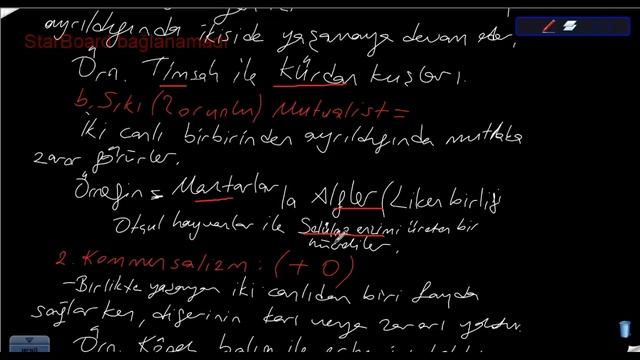 ayrıldığında ikiside yaşamaya devam eder.
StarBoard bağlanamadı
Örn. Timsah ile Kürdan kuşları.
b. Sıkı (Zorunlu) Mutualist =
İki canlı birbirinden ayrıldığında mutlaka
zarar görürler.
Örneğin = Mantarlar la Algler (Liken birliği
Otçul hayvanlar ile Selülaz enzimi üreten bir
hücreliler.
2. Kommensalizm: (+ 0)
- Birlikte yaşayan iki canlıdan biri fayda
sağlarken, diğerinin karı veya zararı yoktur.
Örn. Köpek balığı ile